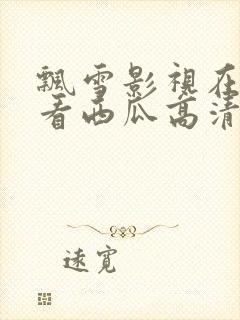 飄雪影視在
看西瓜高清
遠寬